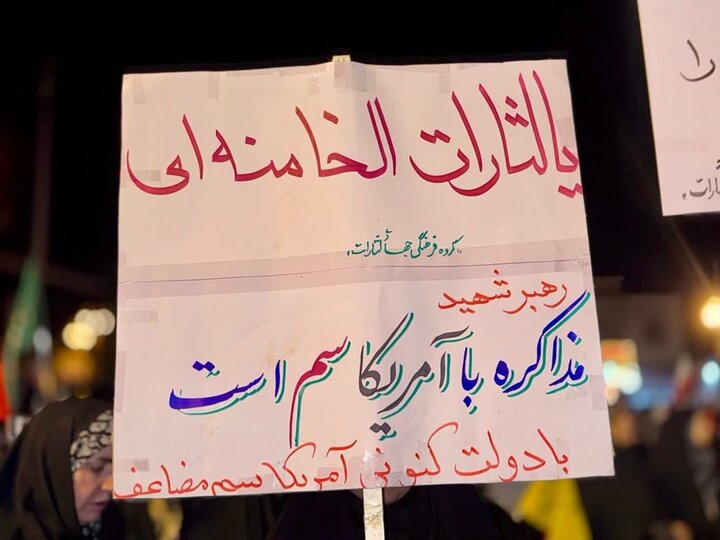 یالثارات الخامنه ای
"گروه فرهنگی جهادی لثارات"
رهبر شهید
مذاکره با آمریکا سم است
با دولت کنونی آمریکا سم مضاعف
را